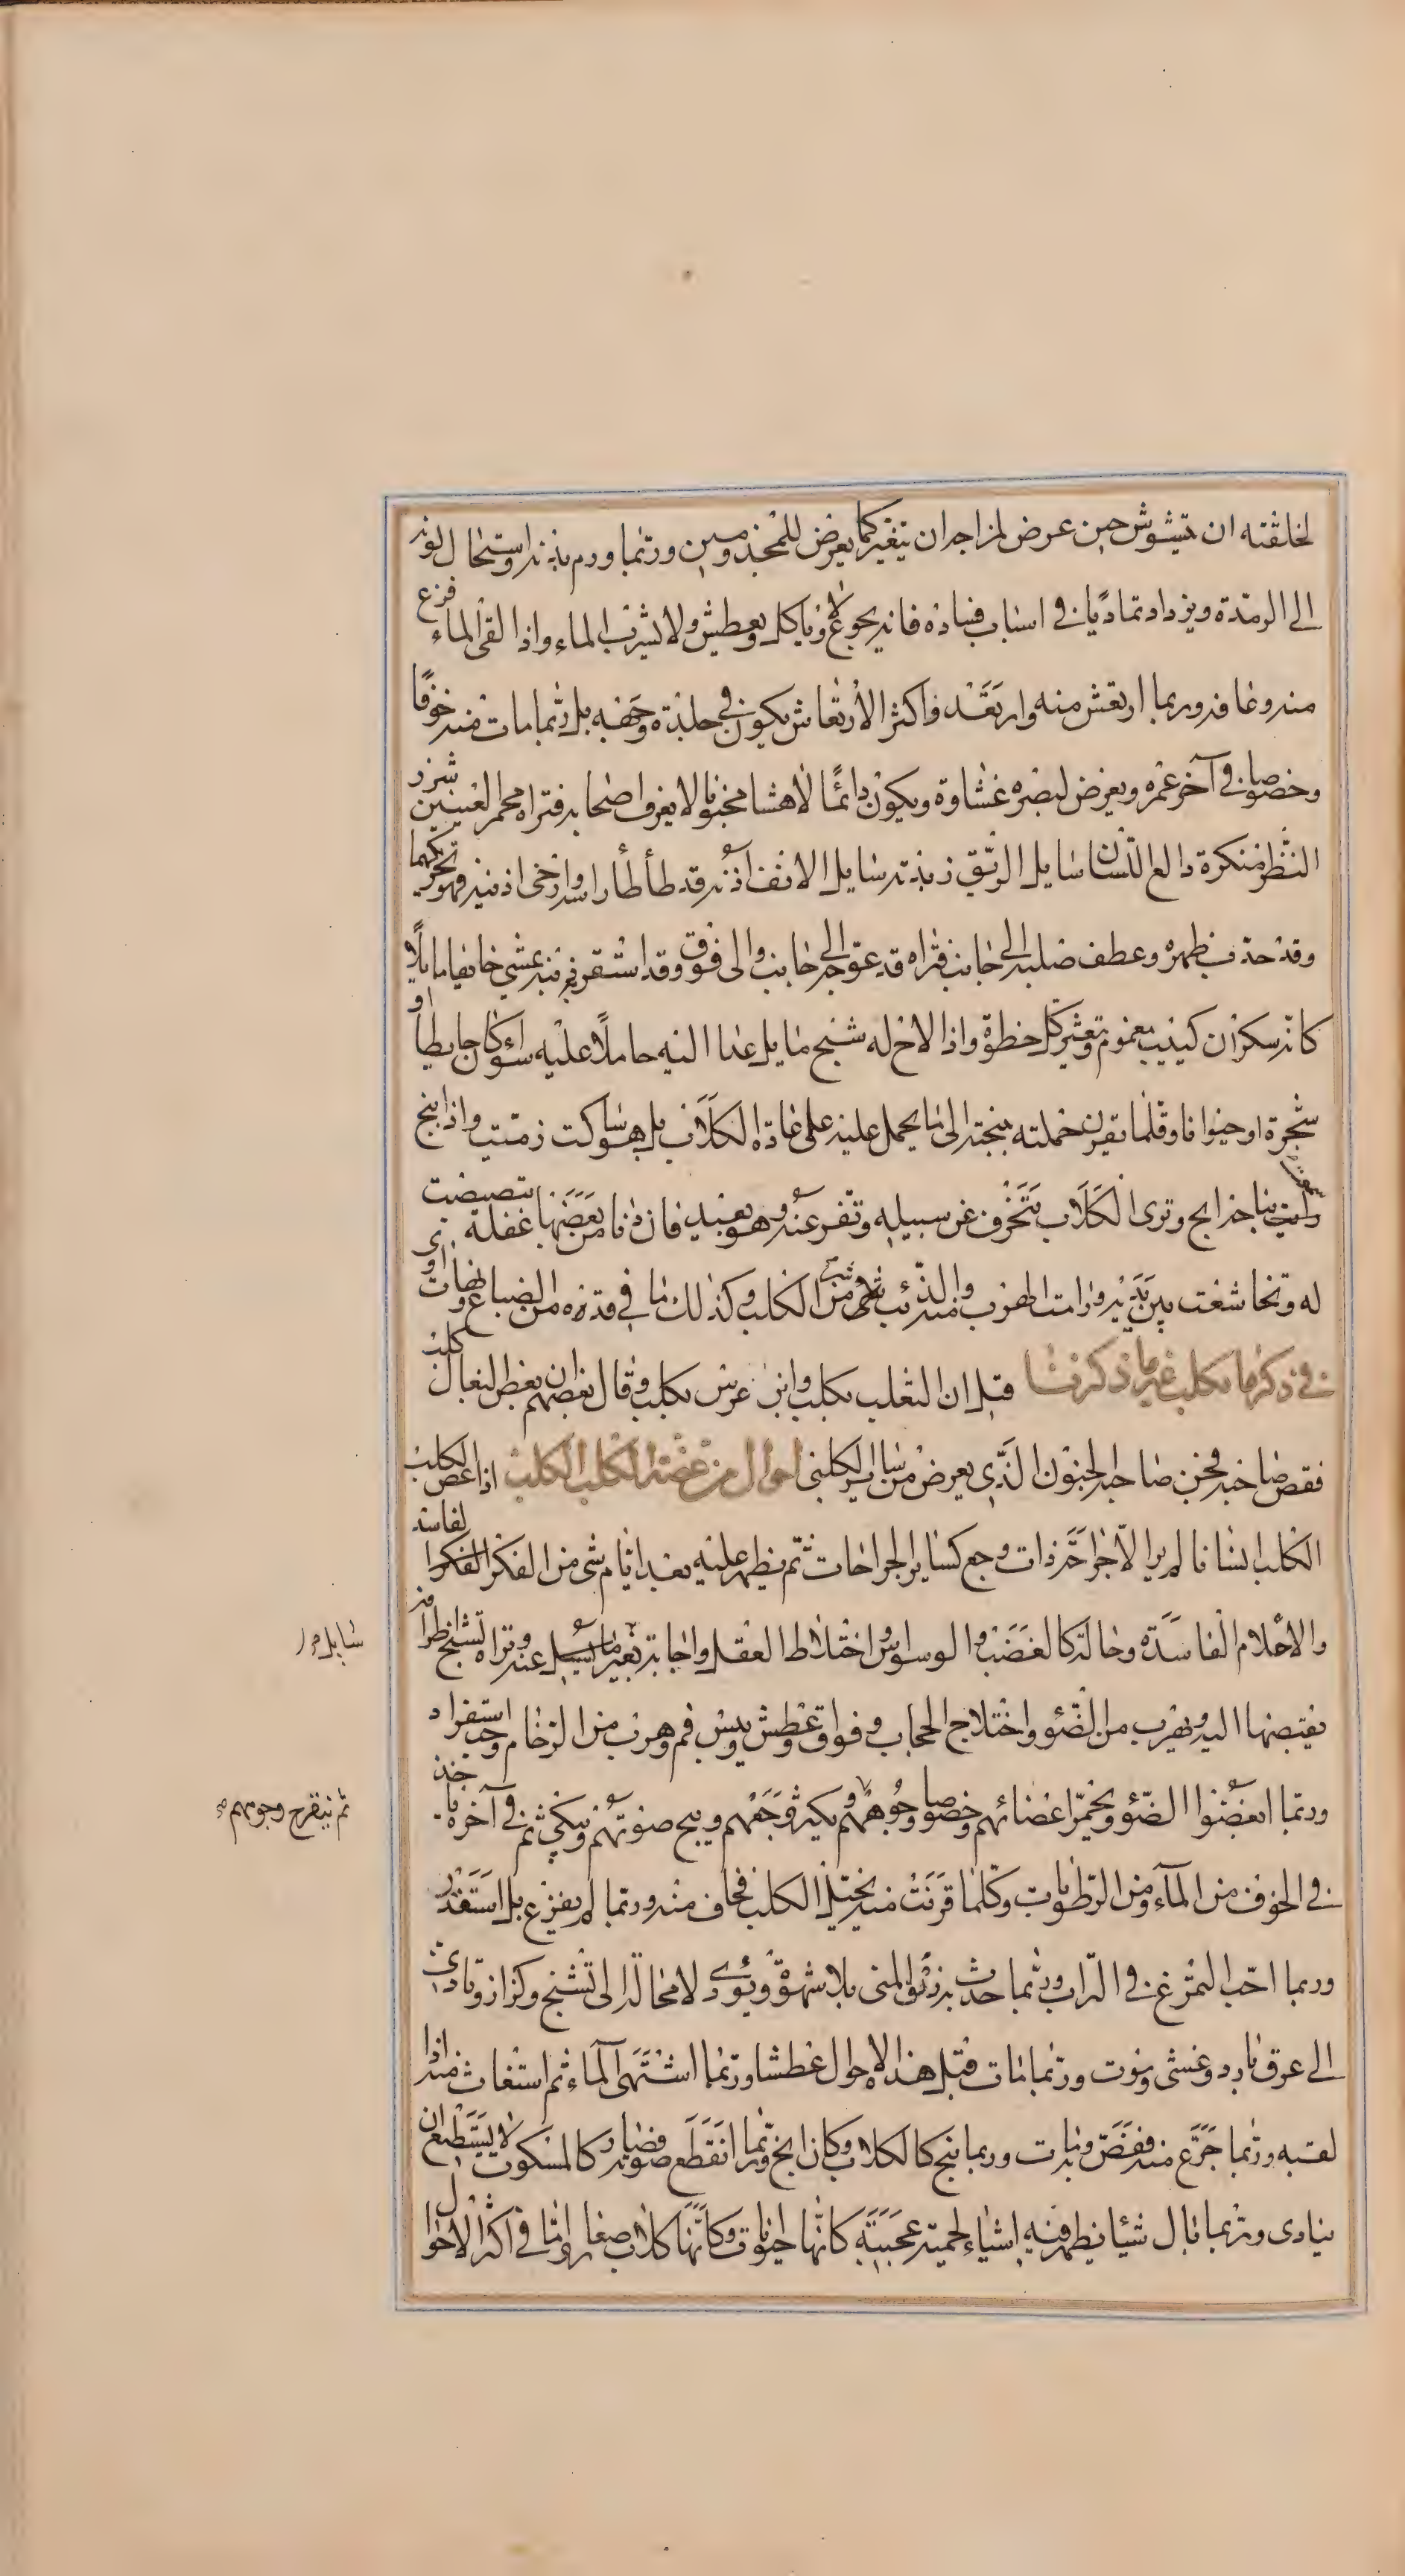 لخلقته ان يتشوش حين عرض لمزاجه ان يتغير كما يعرض للمجذومين وربما ورم بدنه واستحال لونه
الى الرمدة ويزداد تماديا في اسباب فساده فانه يجوع ولا ياكل ويعطش ولا يشرب الماء واذا لقى الماء فزع
منه وعافه وربما ارتعش منه وارتعد واكثر الارتعاش يكون في جلدة وجهه بل ربما مات منه خوفا
وخصوصا في آخر عمره ويعرض لبصره غشاوة ويكون دائما لاهثا مجنونا لا يعرف اصحابه فتراه محمر العينين شزر
النظر منكرة دالع اللسان سايل الريق زبده سايل الانف اذنه قد طأطأ راسه وارخى اذنيه فهو يحركهما
وقد حدب ظهره وعطف صلبه الى جانب فتراه قد عوج الى جانب والى فوق وقد استقر ذنبه يمشي خائفا مايلا
كانه سكران كئيب مغموم ويتعثر كل خطوة واذا لاح له شبح مايل عدا اليه حاملا عليه سواء كان حايطا او
شجرة او حيوانا وقلما يقرن حملته بنبحته الى ما يحمل عليه على عادة الكلاب بل هو ساكت زميت واذا نبح
رايت نباحه ابح وترى الكلاب تنحرف عن سبيله وتفر عنه وهو بعيد فان دنا من بعضها غفلة تبصبصت
له وتخاشعت بين يديه ورامت الهرب منه والذئب شر من الكلب وكذلك ما في قدره من الضباع وبنات آوى
في ذكر ما يكلب غير ما ذكرنا قيل ان الثعلب يكلب وابن عرس يكلب وقال بعضهم ان بعض البغال كلب
فعض صاحبه فجن صاحبه الجنون الذي يعرض من ساير الكلبى احوال من عضه الكلب الكلب اذا عض الكلب
الكلب انسانا لم ير الا جراحة ذات وجع كساير الجراحات ثم يظهر عليه بعد ايام شئ من الفكر الفاسد
والاحلام الفاسدة وحالة كالغضب والوسواس واختلاط العقل واجابة بغير ما يسئل عنه وتراه يشنج اطرافه
يقبضها اليه ويهرب من الضوء واختلاج الحجاب وفواق وعطش ويبس فم وهرب من الزحام وحب استفراد
وربما ابغضوا الضوء ويحمر اعضائهم وخصوصا وجوههم ويكثر وجعهم ويبح صوتهم ويبكي ثم في آخره ياخذ
في الخوف من الماء ومن الرطوبات وكلما قربت منه يخيل الكلب فخاف منه وربما لم يفزع بل استقذر
وربما احب التمرغ في التراب وربما حدث به زرق المنى بلا شهوة ويؤدى لا محالة الى تشنج وكزاز وتادى
الى عرق بارد وغشى وموت وربما مات قبل هذا الاحوال عطشا وربما اشتهى الماء ثم استغاث منه اذا
لقيه وربما جرع منه فغص وربما نبح كالكلاب وكان ابح وربما انقطع صوته فصار كالمسكوت لا يستطيع ان
ينادى وربما بال شيئا يظهر فيه اشياء لحمية عجيبة كانها حيوانات وكانها كلاب صغار واما في اكثر الاحوال
سايل مر
ثم يتقرح وجوههم صح